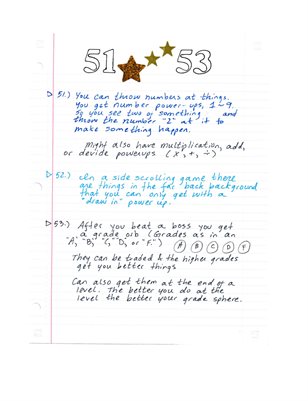 51 53
▷ 51.) You can throw numbers at things.
You get number power-ups, 1~9.
So you see two of something and
throw the number "2" at it to
make something happen.
might also have multiplication, add,
or devide powerups (x, +, ÷)
▷ 52.) In a side scrolling game there
are things in the far back background
that you can only get with a
"draw in" power up.
▷ 53.) After you beat a boss you get
a grade orb (Grades as in an
"A," "B," "C," "D," or "F.") A B C D F
They can be traded & the higher grades
get you better things
Can also get them at the end of a
level. The better you do at the
level the better your grade sphere.